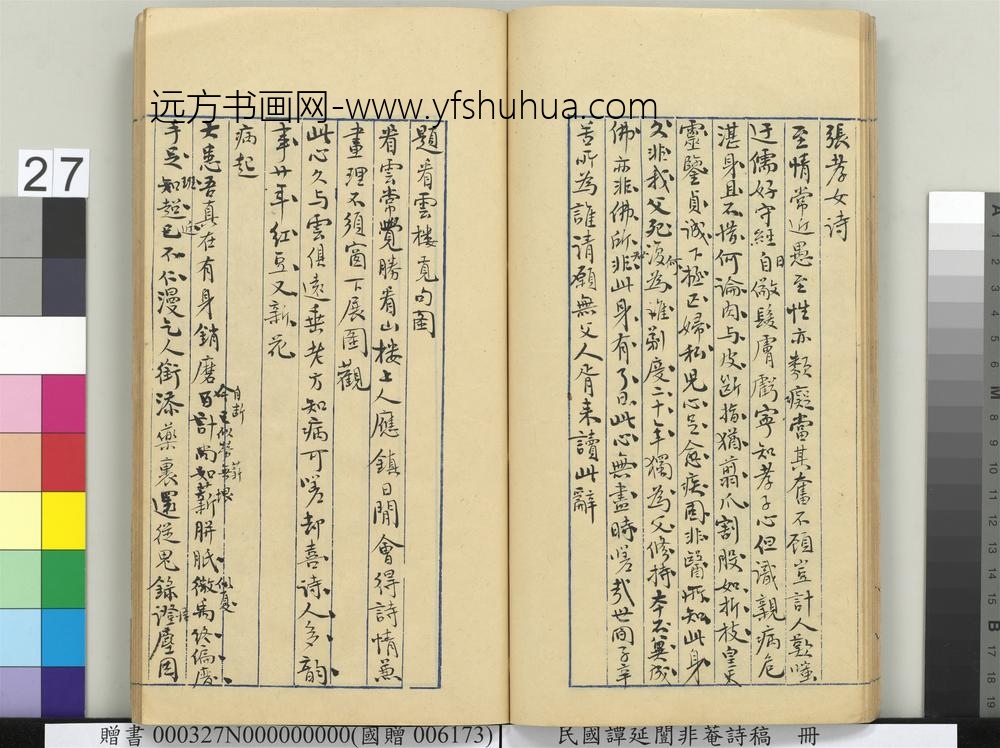 远方书画网-www.yfshuhua.com
張孝女詩
至情常近愚至性亦類癡當其奮不顧豈計人歎嗤
迂儒好守經自做髮膚虧寧知孝子心但識親病危
湛身且不惜何論肉与皮斷指猶翦爪割股如折枝皇天
靈鑒貞誠下極匹婦私見心足愈疾固非醫所知此身
久非我父死復為誰剃度二十年獨為父修持本不異成
佛亦非佛所非此身有了日此心無盡時嗟哉世間子辛
苦所為誰請願無父人胥来讀此辭
題看雲樓覓句圖
看雲常覺勝看山樓上人應鎮日閒會得詩情兼
畫理不須窗下展圖觀
此心久与雲俱遠垂老方知病可嗟却喜詩人多韵
事廿年紅豆又新花
病起
大患吾真在有身銷磨百計尚如薪胼胝徵禹終偏廢
手足知超已不仁漫乞人銜添藥裹還從鬼錄證塵因
27
贈書 000327N000000000(國贈 006173)
民國譚延闓非菴詩稿 冊